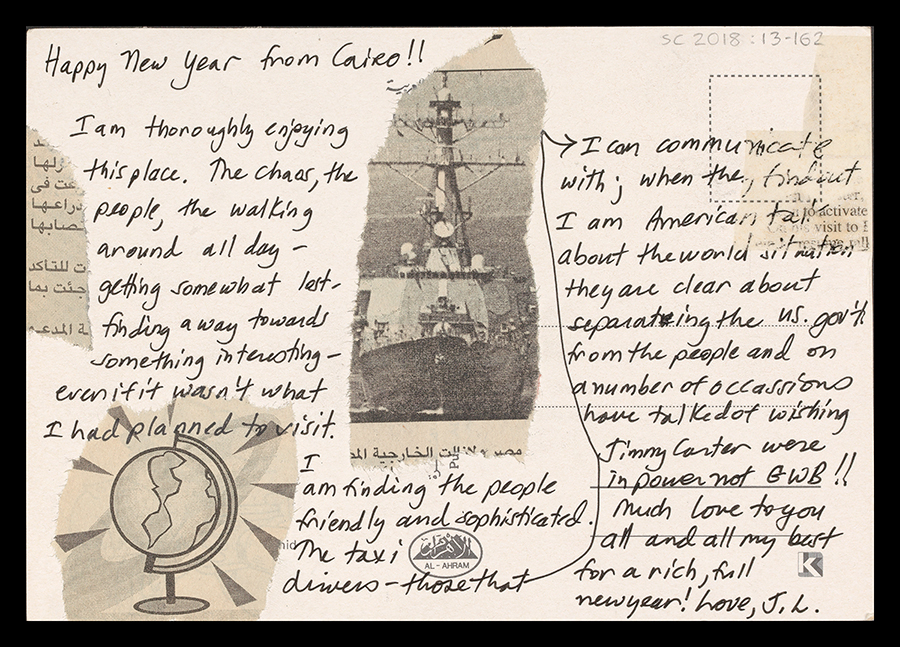 SC 2018:13-162
Happy New Year from Cairo!!
I am thoroughly enjoying
this place. The chaos, the
people, the walking
around all day –
getting somewhat lost –
finding a way towards
something interesting –
even if it wasn't what
I had planned to visit.
I
am finding the people
friendly and sophisticated.
The taxi
drivers – those that
→ I can communicate
with; when they find out
I am American talk
about the world situation
they are clear about
separating the US. gov't
from the people and on
a number of occassions
have talked of wishing
Jimmy Carter were
in power not GWB!!
Much love to you
all and all my best
for a rich, full
new year! Love, J.L.
الأهرام
AL-AHRAM
to activate
visit to
ت للتأكد
جئت بما
K